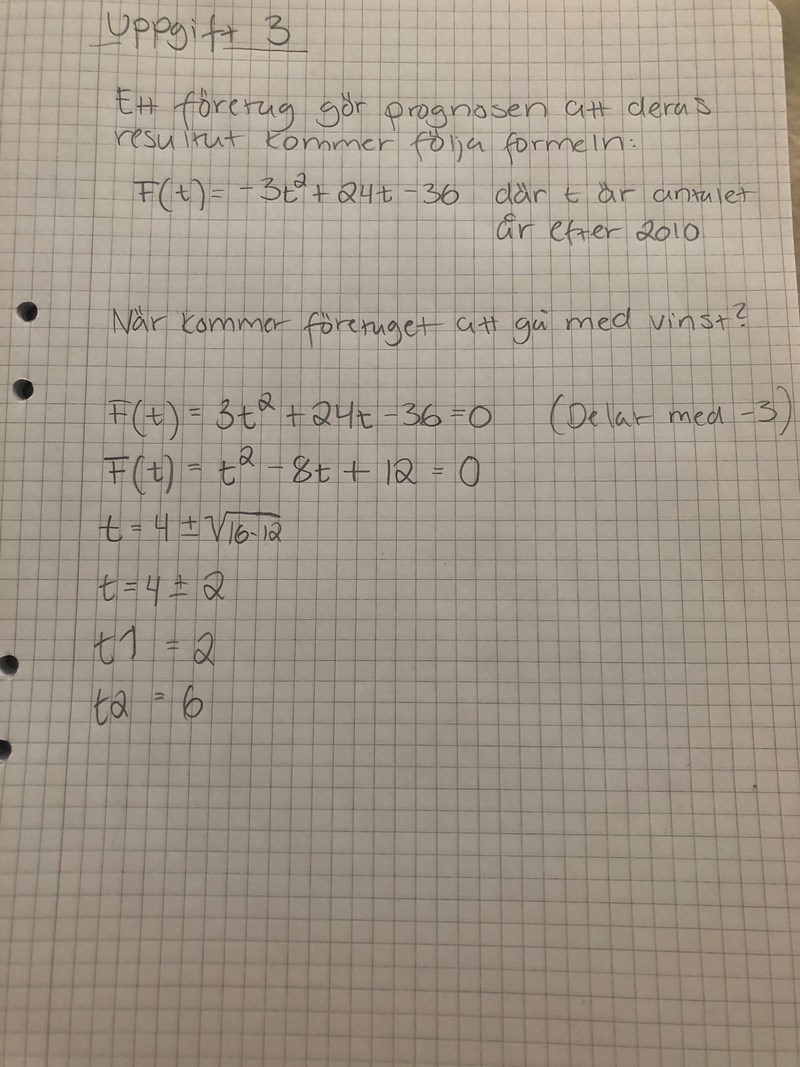 Uppgift 3
Ett företag gör prognosen att deras
resultat kommer följa formeln:
F(t) = -3t² + 24t - 36 där t är antalet
år efter 2010
När kommer företaget att gå med vinst?
F(t) = 3t² + 24t - 36 = 0 (Delar med -3)
F(t) = t² - 8t + 12 = 0
t = 4 ± √16-12
t = 4 ± 2
t1 = 2
t2 = 6